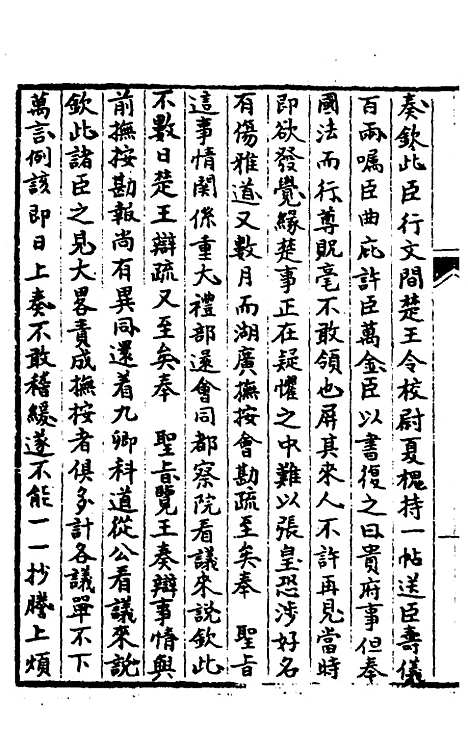 奏欽此臣行文間楚王令校尉夏槐持一帖送臣壽儀
百兩囑臣曲庇許臣萬金臣以書復之曰貴府事但奉
國法而行尊貺毫不敢領也屏其來人不許再見當時
即欲發覺緣楚事正在疑懼之中難以張皇恐涉好名
有傷雅道又數月而湖廣撫按會勘疏至矣奉　聖旨
這事情關係重大禮部還會同都察院看議來說欽此
不數日楚王辯疏又至矣奉　聖旨覽王奏辯事情與
前撫按勘報尚有異同還着九卿科道從公看議來說
欽此諸臣之見大畧責成撫按者俱多計各議單不下
萬言例該即日上奏不敢稽緩遂不能一一抄謄上煩